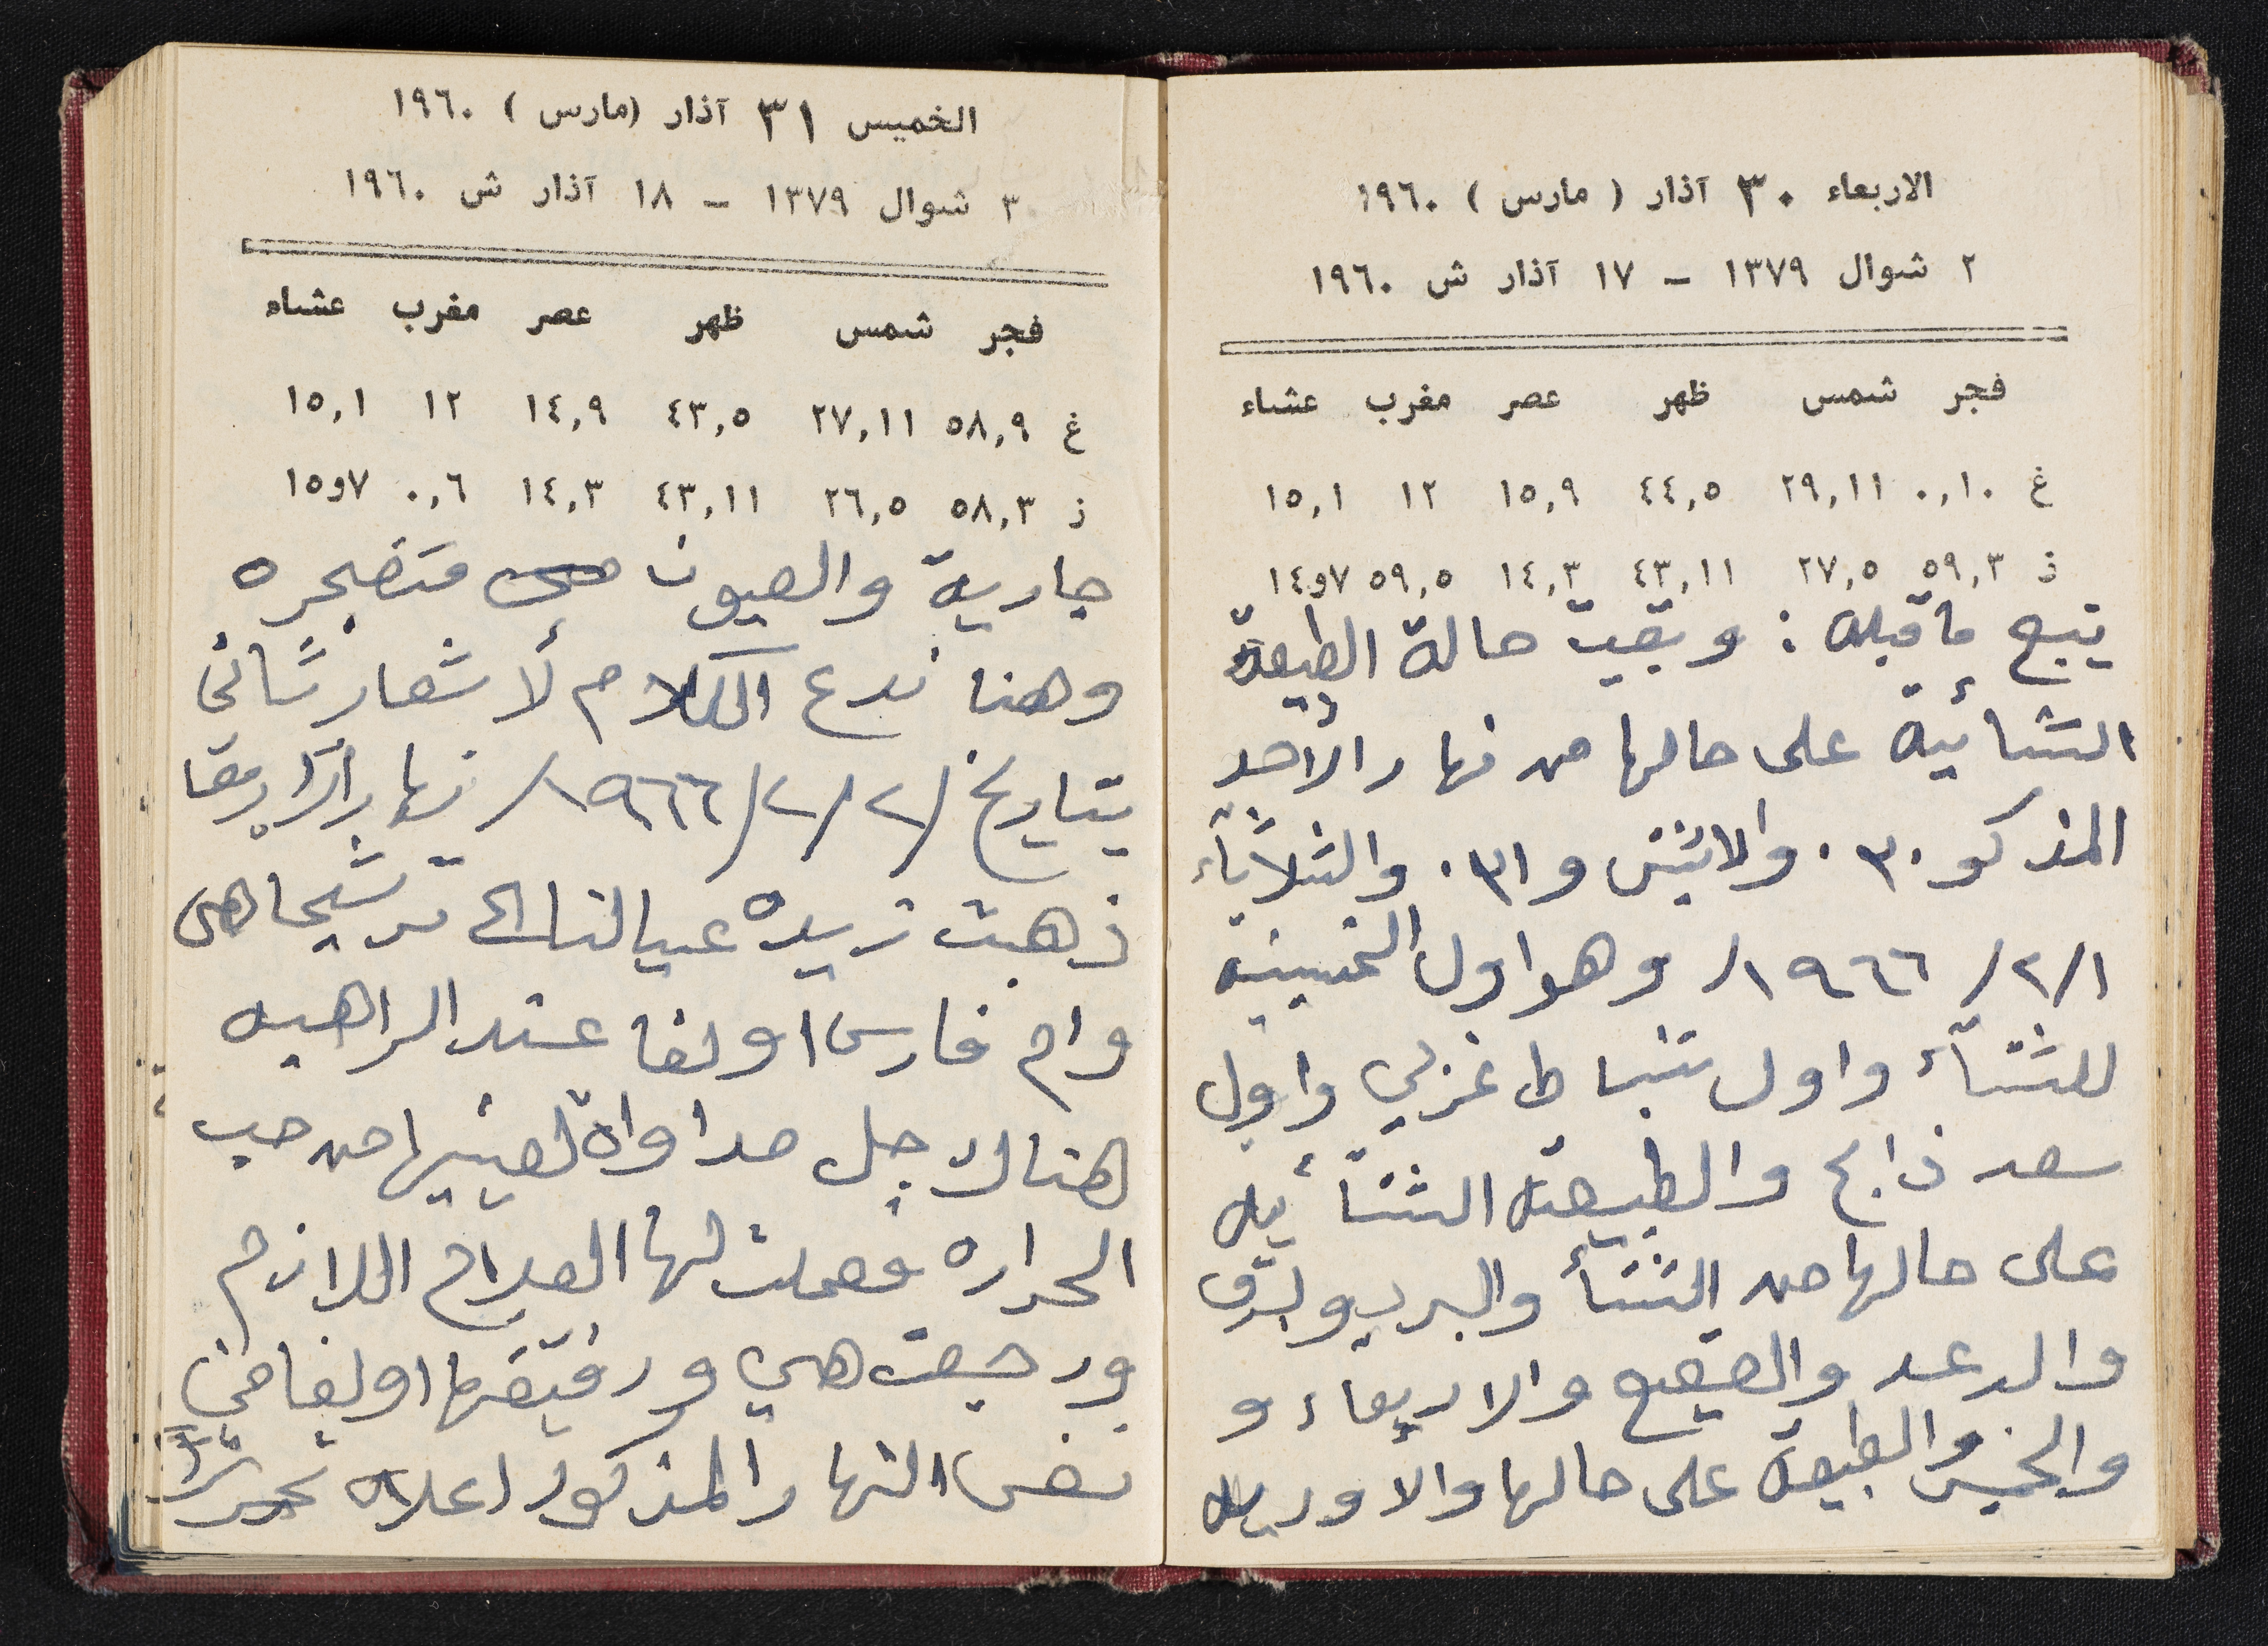 الاربعاء ٣٠ آذار ( مارس ) ١٩٦٠
٢ شوال ١٣٧٩ - ١٧ آذار ش ١٩٦٠
فجر شمس ظهر عصر مغرب عشاء
غ ٠,١٠ ٢٩,١١ ٤٤,٥ ١٥,٩ ١٢ ١٥,١
ذ ٥٩,٣ ٢٧,٥ ٤٣,١١ ١٤,٣ ٥٩,٥ ١٤و٧
يتبع ماقبله : وبقيت حالة الطبيعة
الشتائية على حالها من نهار الأحد
المذكو ٣٠٠ والاثنين و ٣١٠ والثلاثاء
١/٢/١٩٦٦/ وهو اول الخمسينيه
للشتآء واول شباط غربي واول
سعد ذابح والطبيعه الشتآئيه
على حالها من الشتأ والبرد وبرق
والرعد والصقيع والاربعاء و
والخميس والطبيعه على حالها والاوديه
الخميس ٣١ آذار (مارس ) ١٩٦٠
٣ شوال ١٣٧٩ - ١٨ آذار ش ١٩٦٠
فجر شمس ظهر عصر مغرب عشاء
غ ٥٨,٩ ٢٧,١١ ٤٣,٥ ١٤,٩ ١٢ ١٥,١
ذ ٥٨,٣ ٢٦,٥ ٤٣,١١ ١٤,٣ ٠,٦ ١٥و٧
جارية والعيون متفجره
وهنا ندع الكلام لأشعار ثاني
بتاريخ /٢/٢/١٩٦٦/ نهار الاربعا
ذهبت زيده عيالنا الى ترشيحا هي
وام فارس اولغا عند الراهبه
هناك جل مداواة لعينيها من حب
الحراره فعملت لها العلاج اللازم
ورجعت هي ورفيقتها اولغا في
نفس النهار المذكور اعلاه تحريراً